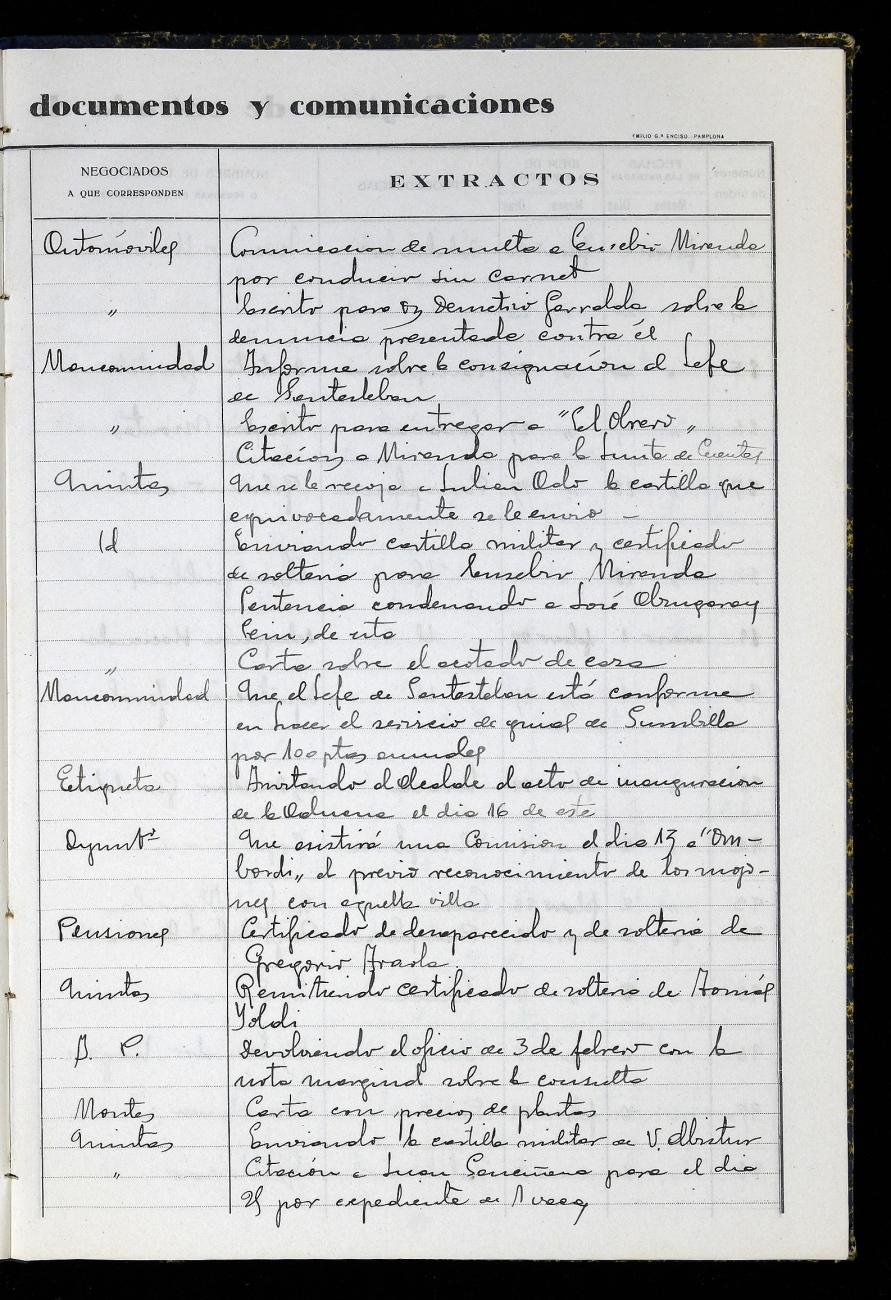 documentos y comunicaciones
EMILIO G.ª ENCISO.-PAMPLONA
NEGOCIADOS
A QUE CORRESPONDEN
EXTRACTOS
Automóviles Comunicacion de multa a Eusebio Miranda
por conducir sin carnet
" Escrito para Demetrio Garralda sobre la
denuncia presentada contra él
Mancomunidad Informe sobre la consignación al Jefe
de Santesteban
" Escrito para entregar a "El Obrero"
Citación a Miranda para la Junta de Cuentas
Quintas Que se le recoja a Julian Oslo la cartilla que
equivocadamente se le envio -
Id Enviando cartilla militar y certificado
de solteria para Eusebio Miranda
Sentencia condenando a José
de esta
" Carta sobre el acotado de caza
Mancomunidad Que el Jefe de Santesteban está conforme
en hacer el servicio de guias de Sumbilla
por 100 ptas anuales
Etiqueta Invitando al Alcalde al acto de inauguración
de la Aduana el dia 16 de este
Ayuntº Que asistirá una Comision el dia 13 a "Om-
bordi" al previo reconocimiento de los mojo-
nes con aquella villa
Pensiones Certificado de desaparecido y de solteria de
Gregorio
Quintas Remitiendo certificado de solteria de Tomás
Yoldi
B. P. Devolviendo el oficio de 3 de febrero con la
nota marginal sobre la consulta
Montes Carta con precios de plantas
Quintas Enviando la cartilla militar de V. Albistur
" Citación a Juan Sanciñena para el dia
por expediente de